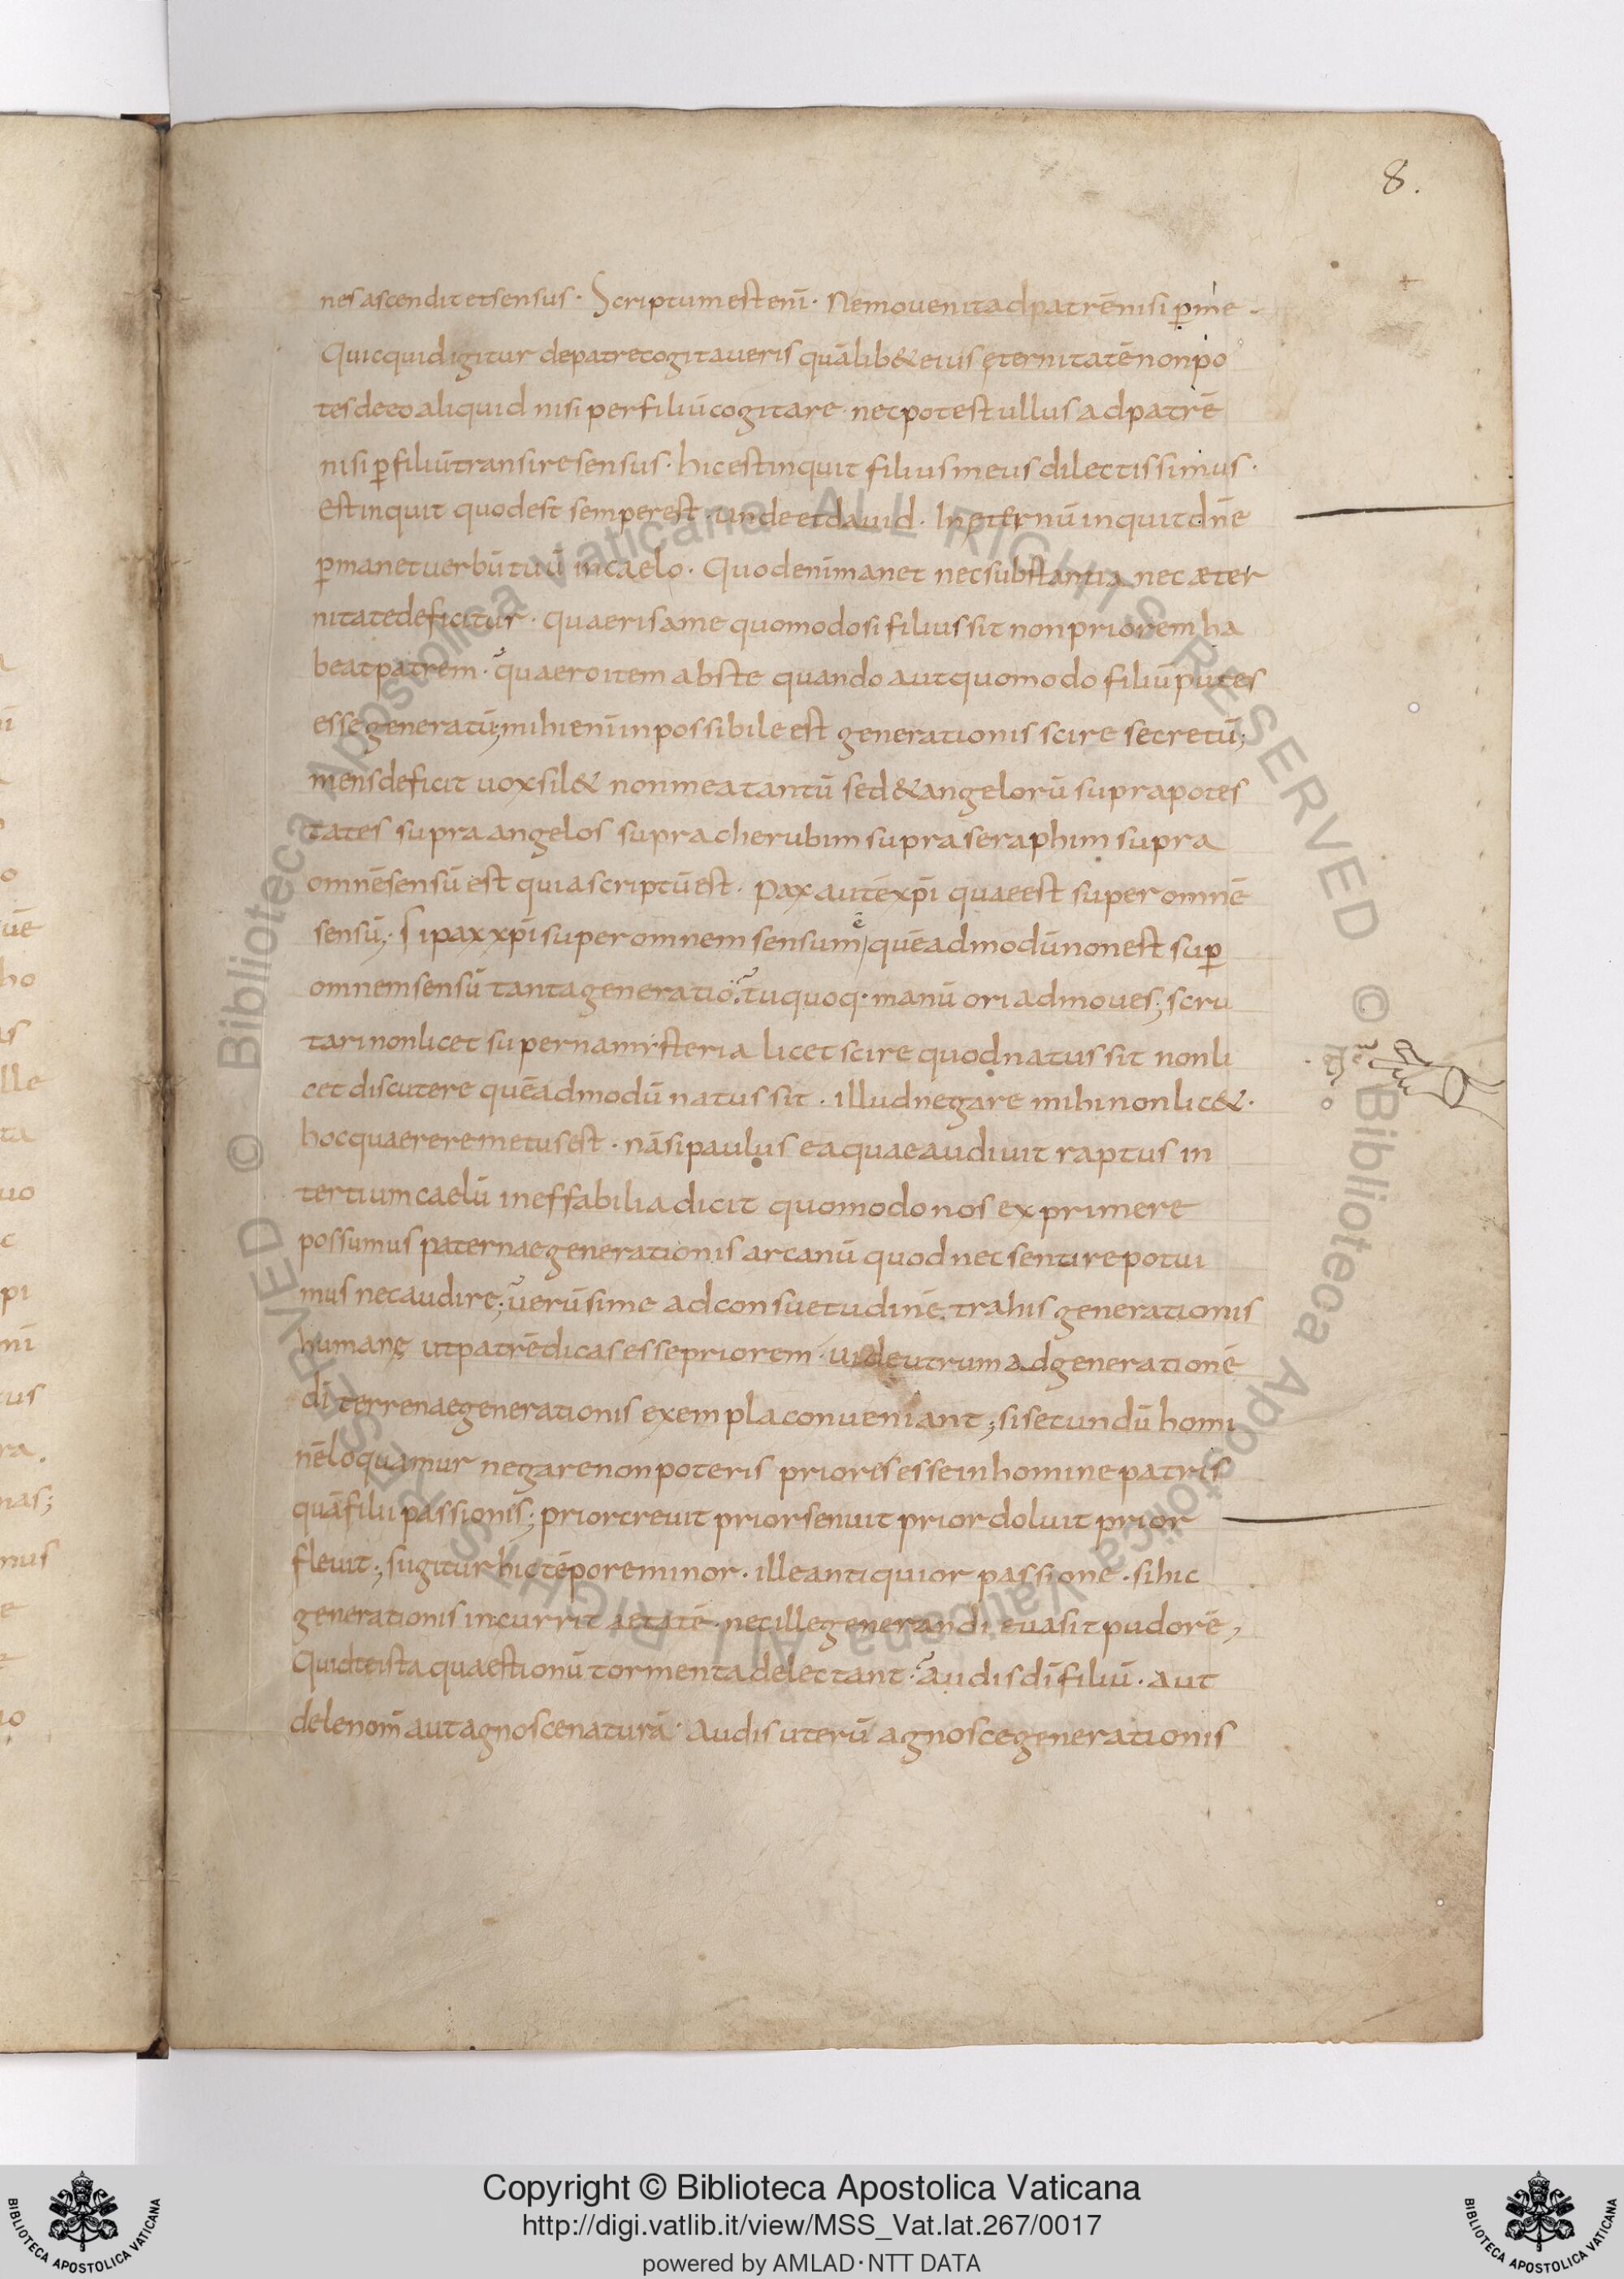 8.
nes ascendit et sensus · Scriptum est enī · Nemo uenit ad patrē nisi ꝑ me ·
Quicquid igitur de patre cogitaueris quālib& eius ęternitatē non po
tes de eo aliquid nisi per filiū cogitare · nec potest ullus ad patrē
nisi ꝑ filiū transire sensus · hic est inquit filius meus dilectissimus ·
Est inquit quod est semper est · unde et dauid · In ęternū inquit dn̄e
ꝑmanet uerbū tuū in caelo · Quod enim manet nec substantia nec æter
nitate deficitur · quaeris a me quomodo si filius sit non priorem ha
beat patrem · quaero item abs te quando aut quomodo filiū putes
esse generatū; mihi enī inpossibile est generationis scire secretū;
mens deficit uox sil& non mea tantū sed & angelorū supra potes
tates supra angelos supra cherubim supra seraphim supra
omnē sensū est quia scriptū est · pax autē xp̄i quae est super omnē
sensū; Si pax xp̄i super omnem sensum ē quēadmodū non est suꝑ
omnem sensū tanta generatio · tu quoq· manū ori admoues; scru
tari non licet superna misteria licet scire quod natus sit non li
cet discutere quēadmodū natus sit · illud negare mihi non lic& ·
hoc quaerere metus est · nā si paulus ea quae audiuit raptus in
tertium caelū ineffabilia dicit quomodo nos exprimere
possumus paternae generationis arcanū quod nec sentire potui
mus nec audire; uerū si me ad consuetudinē trahis generationis
humanę ut patrē dicas esse priorem · uide utrum ad generationē
dī terrenae generationis exempla conueniant; si secundū homi
nē loquamur negare non poteris prioris esse in homine patris
quā filii passionis; prior creuit prior senuit prior doluit prior
fleuit; si igitur hic tēpore minor · ille antiquior passione · si hic
generationis incurrit aetatē · nec ille generandi euasit pudorē,
Quid te ista quaestionū tormenta delectant · audis dī filiū · aut
dele nom̄ aut agnosce naturā · Audis uterū agnosce generationis
© Biblioteca Apostolica Vaticana ALL RIGHTS RESERVED
© Biblioteca Apostolica Vaticana ALL RIGHTS RESERVED
Copyright © Biblioteca Apostolica Vaticana
http://digi.vatlib.it/view/MSS_Vat.lat.267/0017
powered by AMLAD·NTT DATA
BIBLIOTECA APOSTOLICA VATICANA
BIBLIOTECA APOSTOLICA VATICANA